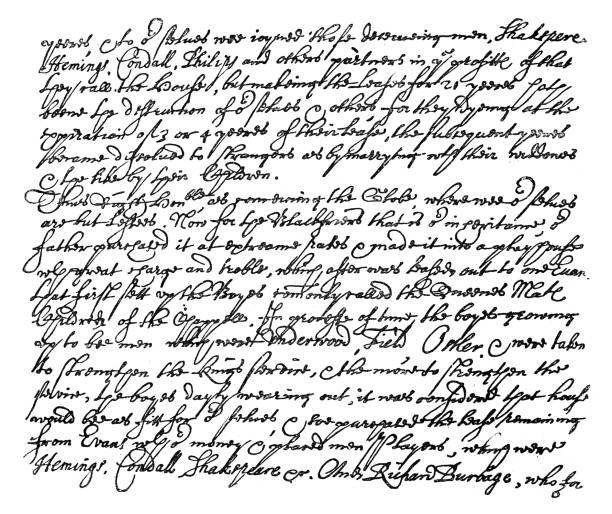 yeeres, & to or selves wee joyned those deserveing men, Shakspere
Hemings, Condall, Philips and others partners in ye profittes of that
they call the House, but making the leases for 21 yeeres hath
beene the destruction of or selves & others, for they dyeing at the
expiration of 3 or 4 yeeres of their lease, the subsequent yeeres
became dissolved to strangers as by marrying wth their widdowes
& the like by their Children.
Thus Right honoble as concerning the Globe, where wee or selves
are but Lessees. Now for the Blackfriers that is or inheritance, or
father purchased it at extreame rates & made it into a playhouse
wth great charge and troble, which after was leased out to one Evans
that first sett up the Boyes comonly called the Queenes Mates
Children of the Chappell. In processe of time the boyes growing
up to bee men which were Underwood, Field, Ostler, & were taken
to strengthen the Kings service, & the more to strengthen the
service, the boyes dayly wearing out, it was considered that house
would bee as fitt for or selves, & soe purchased the lease remaining
from Evans wth or money & placed men Players, which were
Hemings, Condall Shakspeare &c. And Richard Burbage, who for